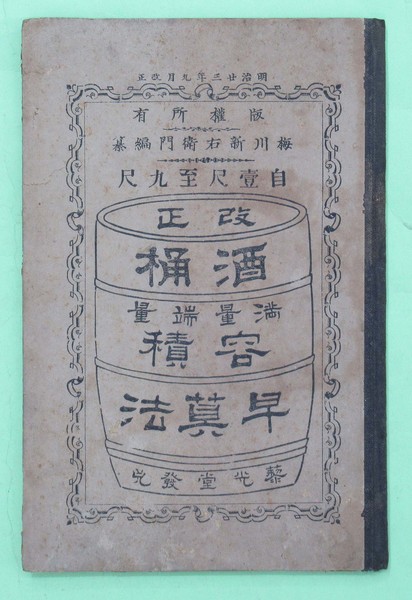 明治廿三年九月改正
版權所有
梅川新右衛門編纂
自壹尺至九尺
改正
酒桶
満量端量
容積
早莫法
藜光堂發兌